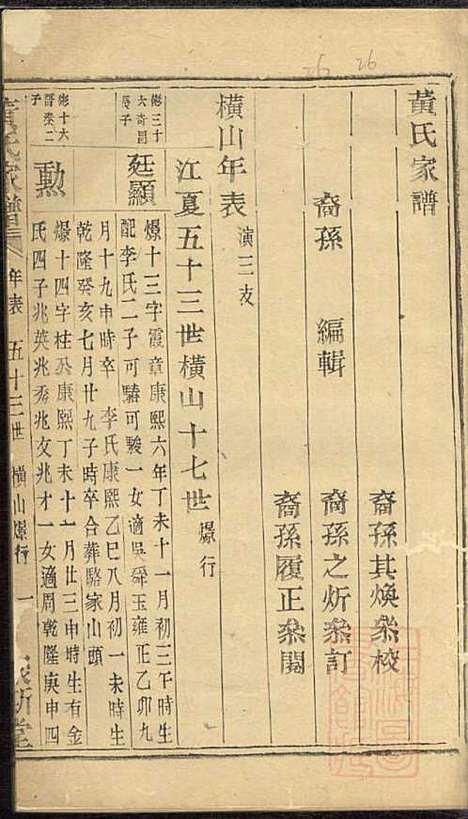 26 26
黃氏家譜
裔孫其煥叅校
裔孫 編輯 裔孫之炘叅訂
裔孫履正叅閱
橫山年表 演三支
江夏五十三世橫山十七世 爆行
廷顯
爆十三字霞章康熙六年丁未十一月初三午時生
配李氏二子可驕可駿一女適吳舜玉雍正乙卯九
月十九申時卒 李氏康熙乙巳八月初一未時生
乾隆癸亥七月廿九子時卒合葬駱家山頭
彬十六
子
勲
爆十四字柱丞康熙丁未十一月廿三申時生有金
氏四子兆英兆秀兆文兆才一女適周乾隆庚申四
黃氏家譜 年表 五十三世 橫山爆行 一